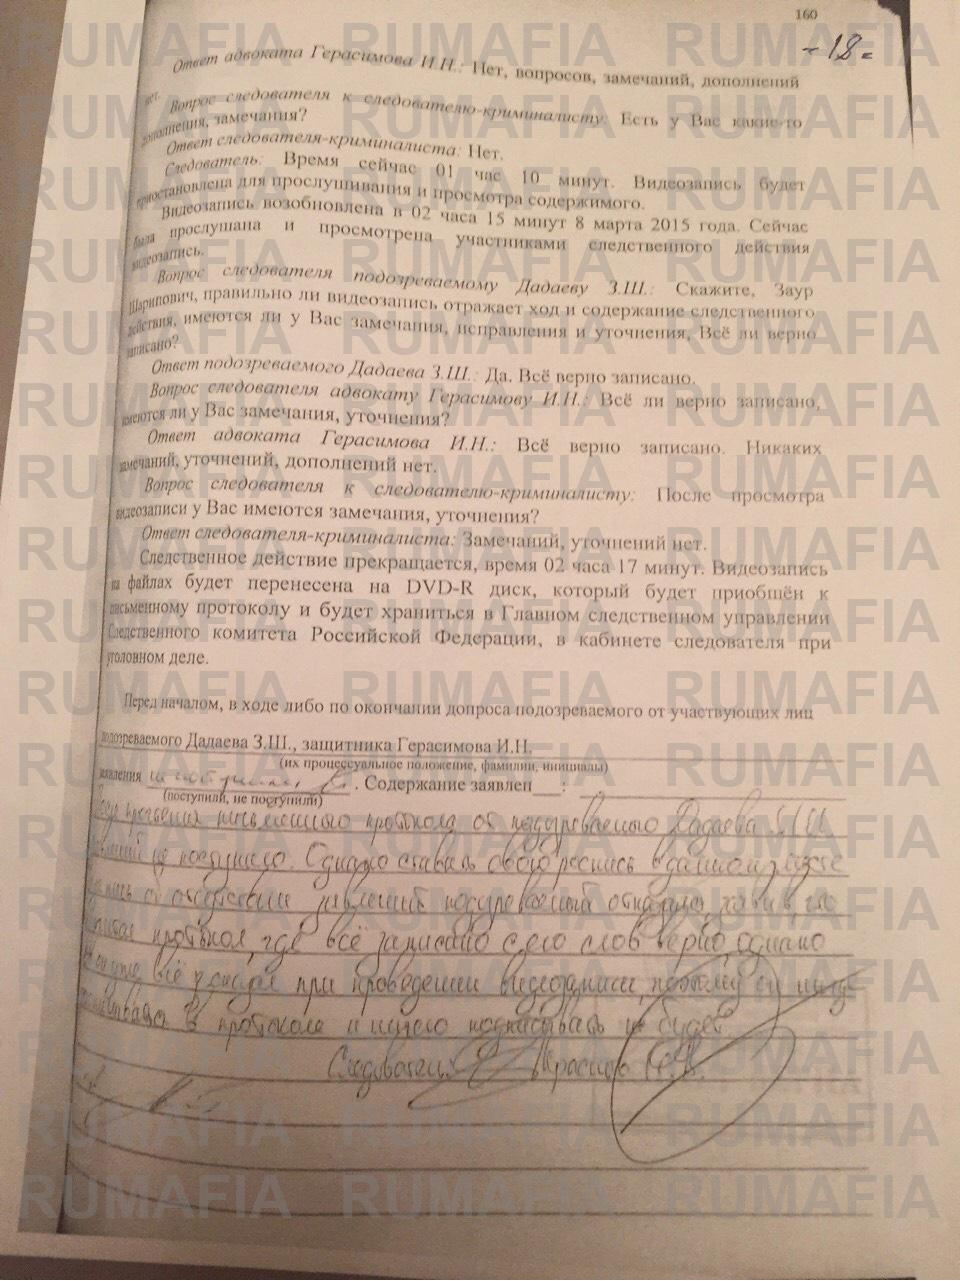 160
- 18 -
Ответ адвоката Герасимова И.Н.: Нет, вопросов, замечаний, дополнений
нет.
Вопрос следователя к следователю-криминалисту: Есть у Вас какие-то
дополнения, замечания?
Ответ следователя-криминалиста: Нет.
Следователь: Время сейчас 01 час 10 минут. Видеозапись будет
приостановлена для прослушивания и просмотра содержимого.
Видеозапись возобновлена в 02 часа 15 минут 8 марта 2015 года. Сейчас
была прослушана и просмотрена участниками следственного действия
видеозапись.
Вопрос следователя подозреваемому Дадаеву З.Ш.: Скажите, Заур
Шарипович, правильно ли видеозапись отражает ход и содержание следственного
действия, имеются ли у Вас замечания, исправления и уточнения, Всё ли верно
записано?
Ответ подозреваемого Дадаева З.Ш.: Да. Всё верно записано.
Вопрос следователя адвокату Герасимову И.Н.: Всё ли верно записано,
имеются ли у Вас замечания, уточнения?
Ответ адвоката Герасимова И.Н.: Всё верно записано. Никаких
замечаний, уточнений, дополнений нет.
Вопрос следователя к следователю-криминалисту: После просмотра
видеозаписи у Вас имеются замечания, уточнения?
Ответ следователя-криминалиста: Замечаний, уточнений нет.
Следственное действие прекращается, время 02 часа 17 минут. Видеозапись
на файлах будет перенесена на DVD-R диск, который будет приобщён к
письменному протоколу и будет храниться в Главном следственном управлении
Следственного комитета Российской Федерации, в кабинете следователя при
уголовном деле.
Перед началом, в ходе либо по окончании допроса подозреваемого от участвующих лиц
подозреваемого Дадаева З.Ш., защитника Герасимова И.Н.
(их процессуальное положение, фамилии, инициалы)
заявления не поступили. Содержание заявлен___:
(поступили, не поступили)
прочтения письменного протокола от подозреваемого Дадаева З.Ш.
не поступило. Однако ставить свою роспись в данном
об отсутствии заявлений подозреваемый отказался, заявив, что
протокол, где всё записано с его слов верно, однако
всё при проведении видеозаписи, поэтому он
в протоколе и ничего подписывать не будет.
Следователь Краснов